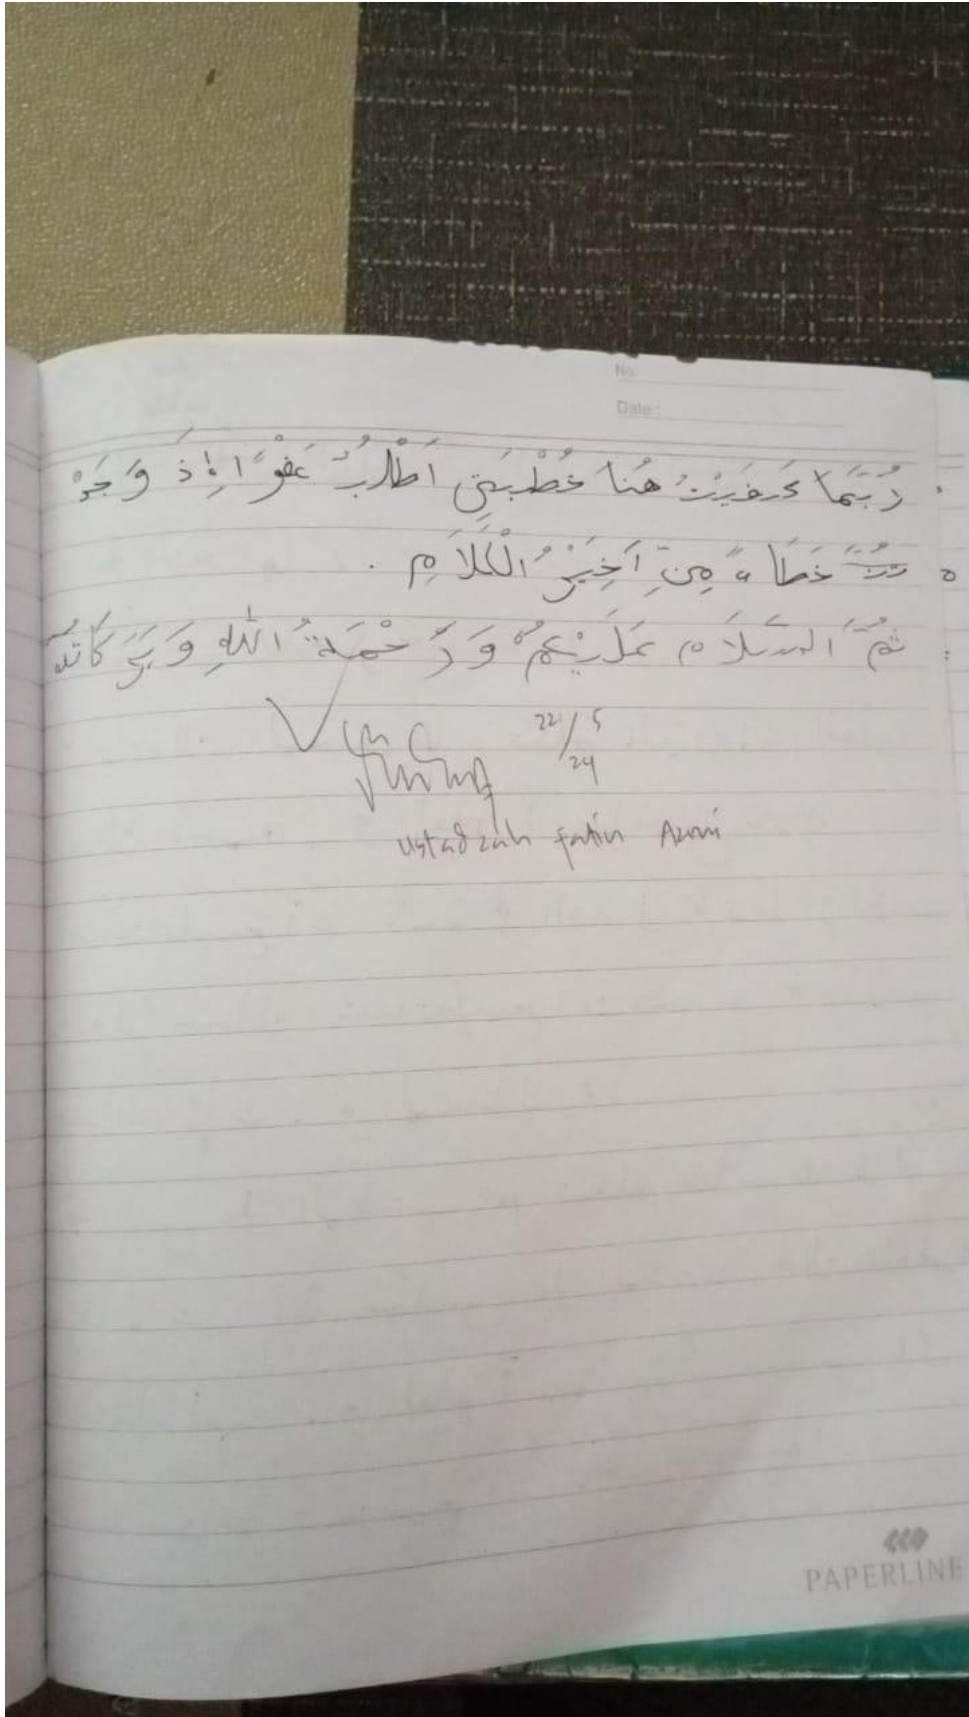 No.
Date :
رُبَّمَا هُنَا خُطْبَتِي اَطْلُبُ عَفْوًا اِذَ وَجَدْ
خَطَاءً مِنِّ اَخِيْرُ الْكَلَامِ .
ثُمَّ السَّلَامُ عَلَيْكُمْ وَرَحْمَةُ اللهِ وَبَرَكَاتُهُ
22/5
24
ustadzah fatin Azmi
PAPERLINE